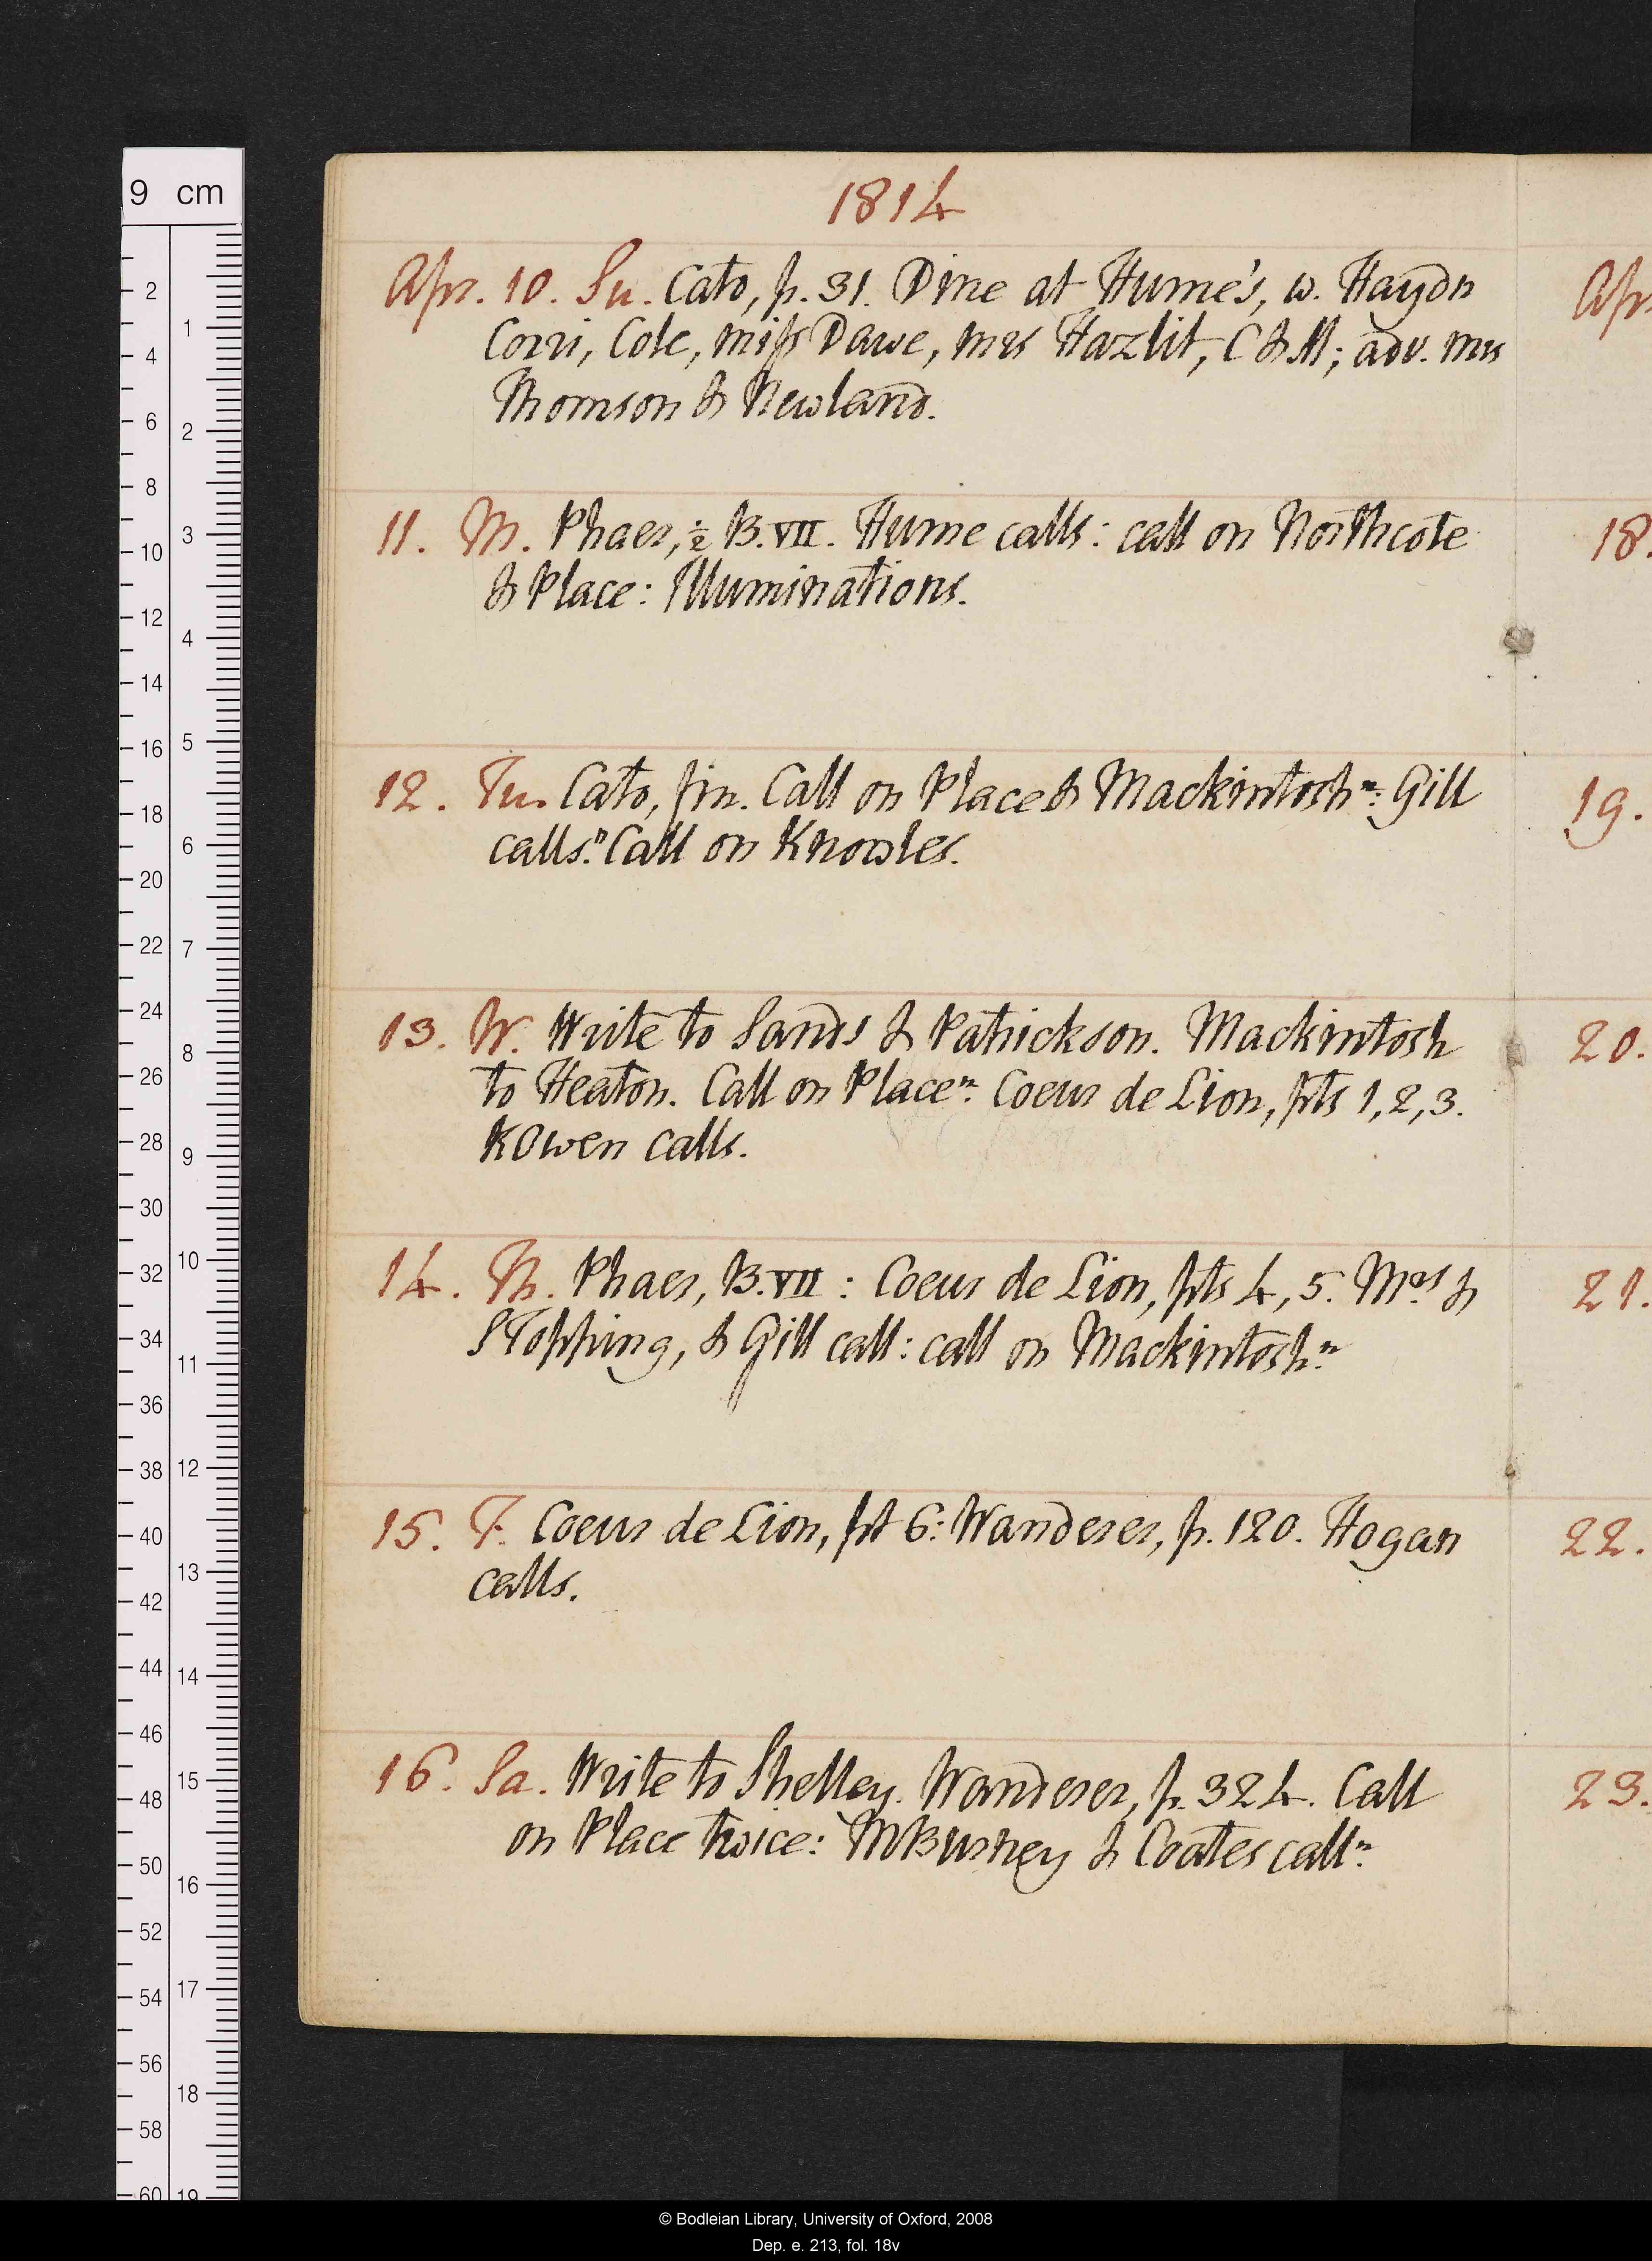 1814
Apr. 10. Su. Cato, p. 31. Dine at Hume's, w. Haydn
Corri, Cole, miss Dawe, mrs Hazlit, C & M; adv. mrs
Thomson & Newland.
11. M. Phaer, ½ B. VII. Hume calls: call on Northcote
& Place: Illuminations.
12. Tu. Cato, fin. Call on Place & Mackintosh n: Gill
calls. n Call on Knowles.
13. W. Write to Sands & Patrickson. Mackintosh
to Heaton. Call on Place n. Coeur de Lion, pts 1, 2, 3.
R Owen calls.
14. Th. Phaer, B. VII: Coeur de Lion, pts 4, 5. Mrs &
S Topping, & Gill call: call on Mackintosh n.
15. F. Coeur de Lion, pt 6: Wanderer, p. 120. Hogan
calls.
16. Sa. Write to Shelley. Wanderer, p. 324. Call
on Place twice: M Bushey & Coates call n.
Apr
18.
19.
20.
21.
22.
23.
9 cm
2
4
6
8
10
12
14
16
18
20
22
24
26
28
30
32
34
36
38
40
42
44
46
48
50
52
54
56
58
60
1
2
3
4
5
6
7
8
9
10
11
12
13
14
15
16
17
18
19
© Bodleian Library, University of Oxford, 2008
Dep. e. 213, fol. 18v